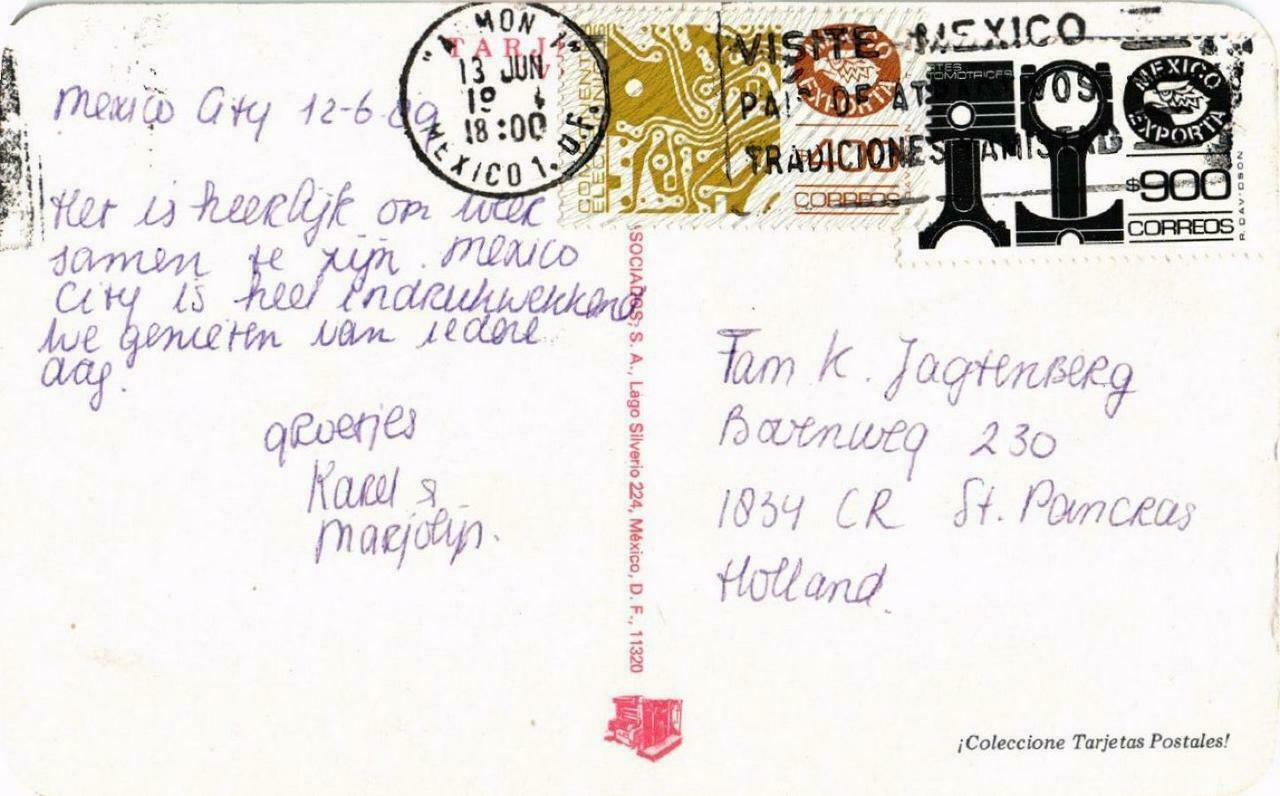 Mexico City 12-6-89
Het is heerlijk om weer
samen te zijn. Mexico
City is heel indrukwekkend
We genieten van iedere
dag.
groetjes
Karel &
Marjolijn.
TARJ
"A MON 1"
13 JUN
19
18:00
MEXICO 1, D.F.
VISITE MEXICO
PAIS DE
TRADICIONES AMISTAD
MEXICO EXPORTA
CORREOS
AUTOMOTRICES
MEXICO EXPORTA
$900
CORREOS
R. DAVIDSON
SOCIADOS, S. A., Lago Silverio 224, México, D. F., 11320
Fam K. Jagtenberg
Bovenweg 230
1834 CR St. Pancras
Holland.
¡Coleccione Tarjetas Postales!